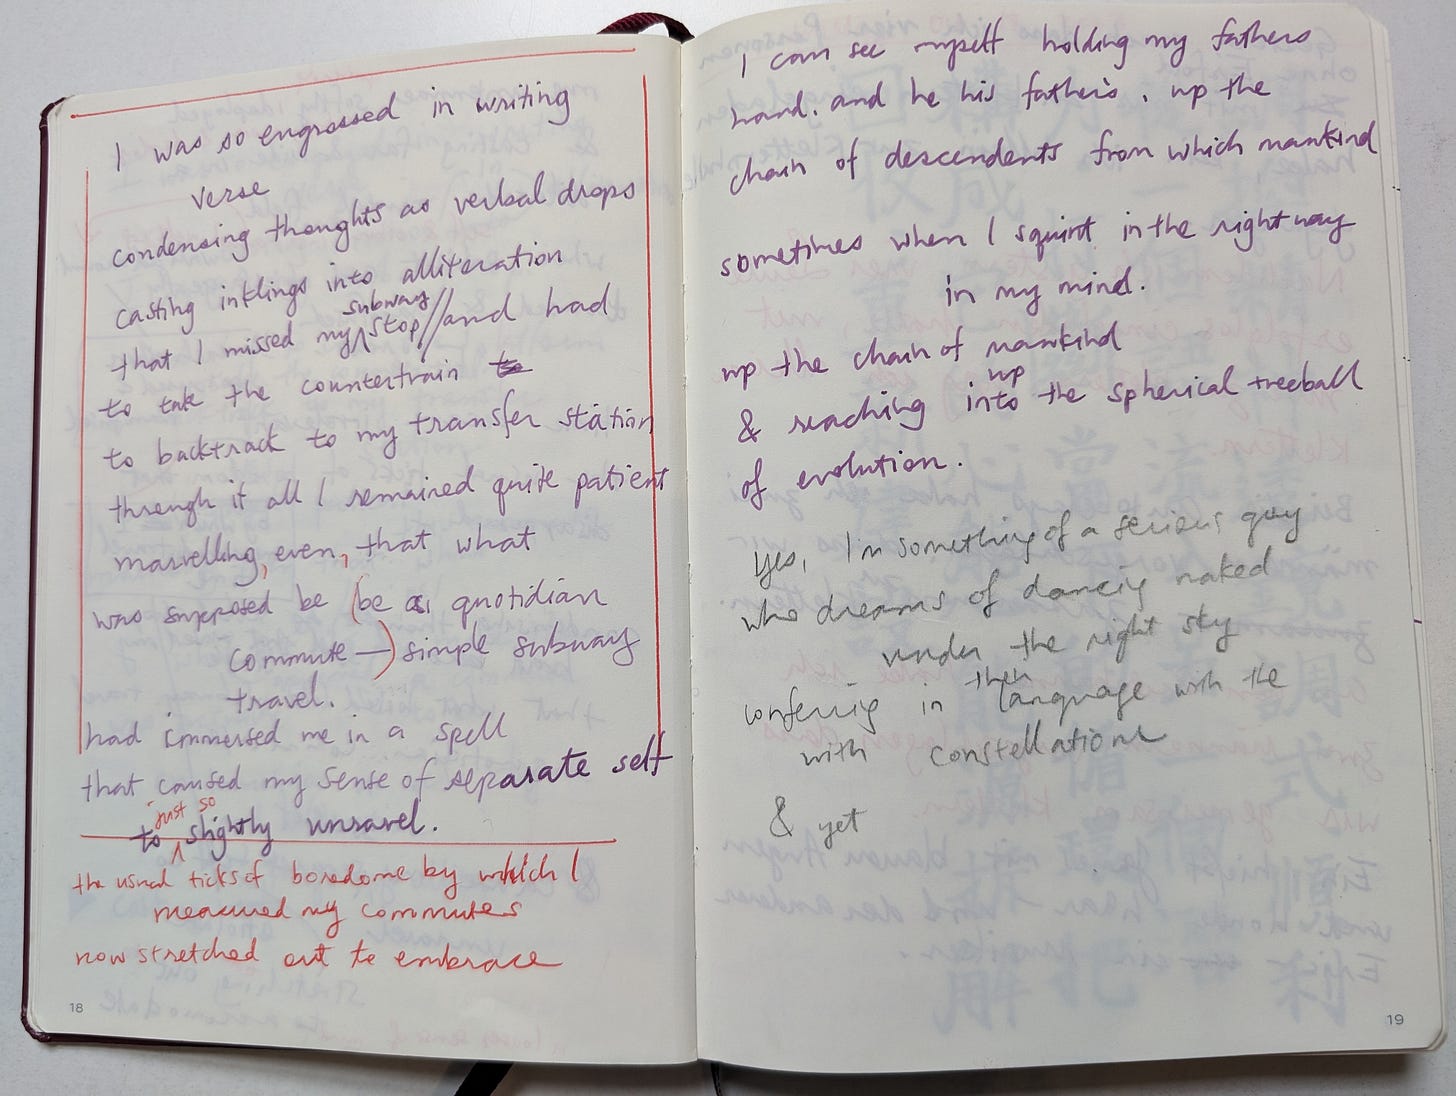 I was so engrossed in writing
verse
condensing thoughts as verbal drops
casting inklings into alliteration
subway
that I missed my stop // and had
to take the countertrain to
to backtrack to my transfer station
through it all I remained quite patient
marvelling, even, that what
was supposed be (be a quotidian
commute —) simple subway
travel.
had immersed me in a spell
that caused my sense of separate self
just so
to slightly unravel.
the usual ticks of boredome by which I
measured my commutes
now stretched out to embrace
18
I can see myself holding my fathers
hand. and he his father's, up the
chain of descendents from which mankind
sometimes when I squint in the right way
in my mind.
up the chain of mankind
up
& reaching into the spherical treeball
of evolution.
Yes, I'm something of a serious guy
who dreams of dancing naked
under the night sky
their
conferring in language with the
with constellations
& yet
19